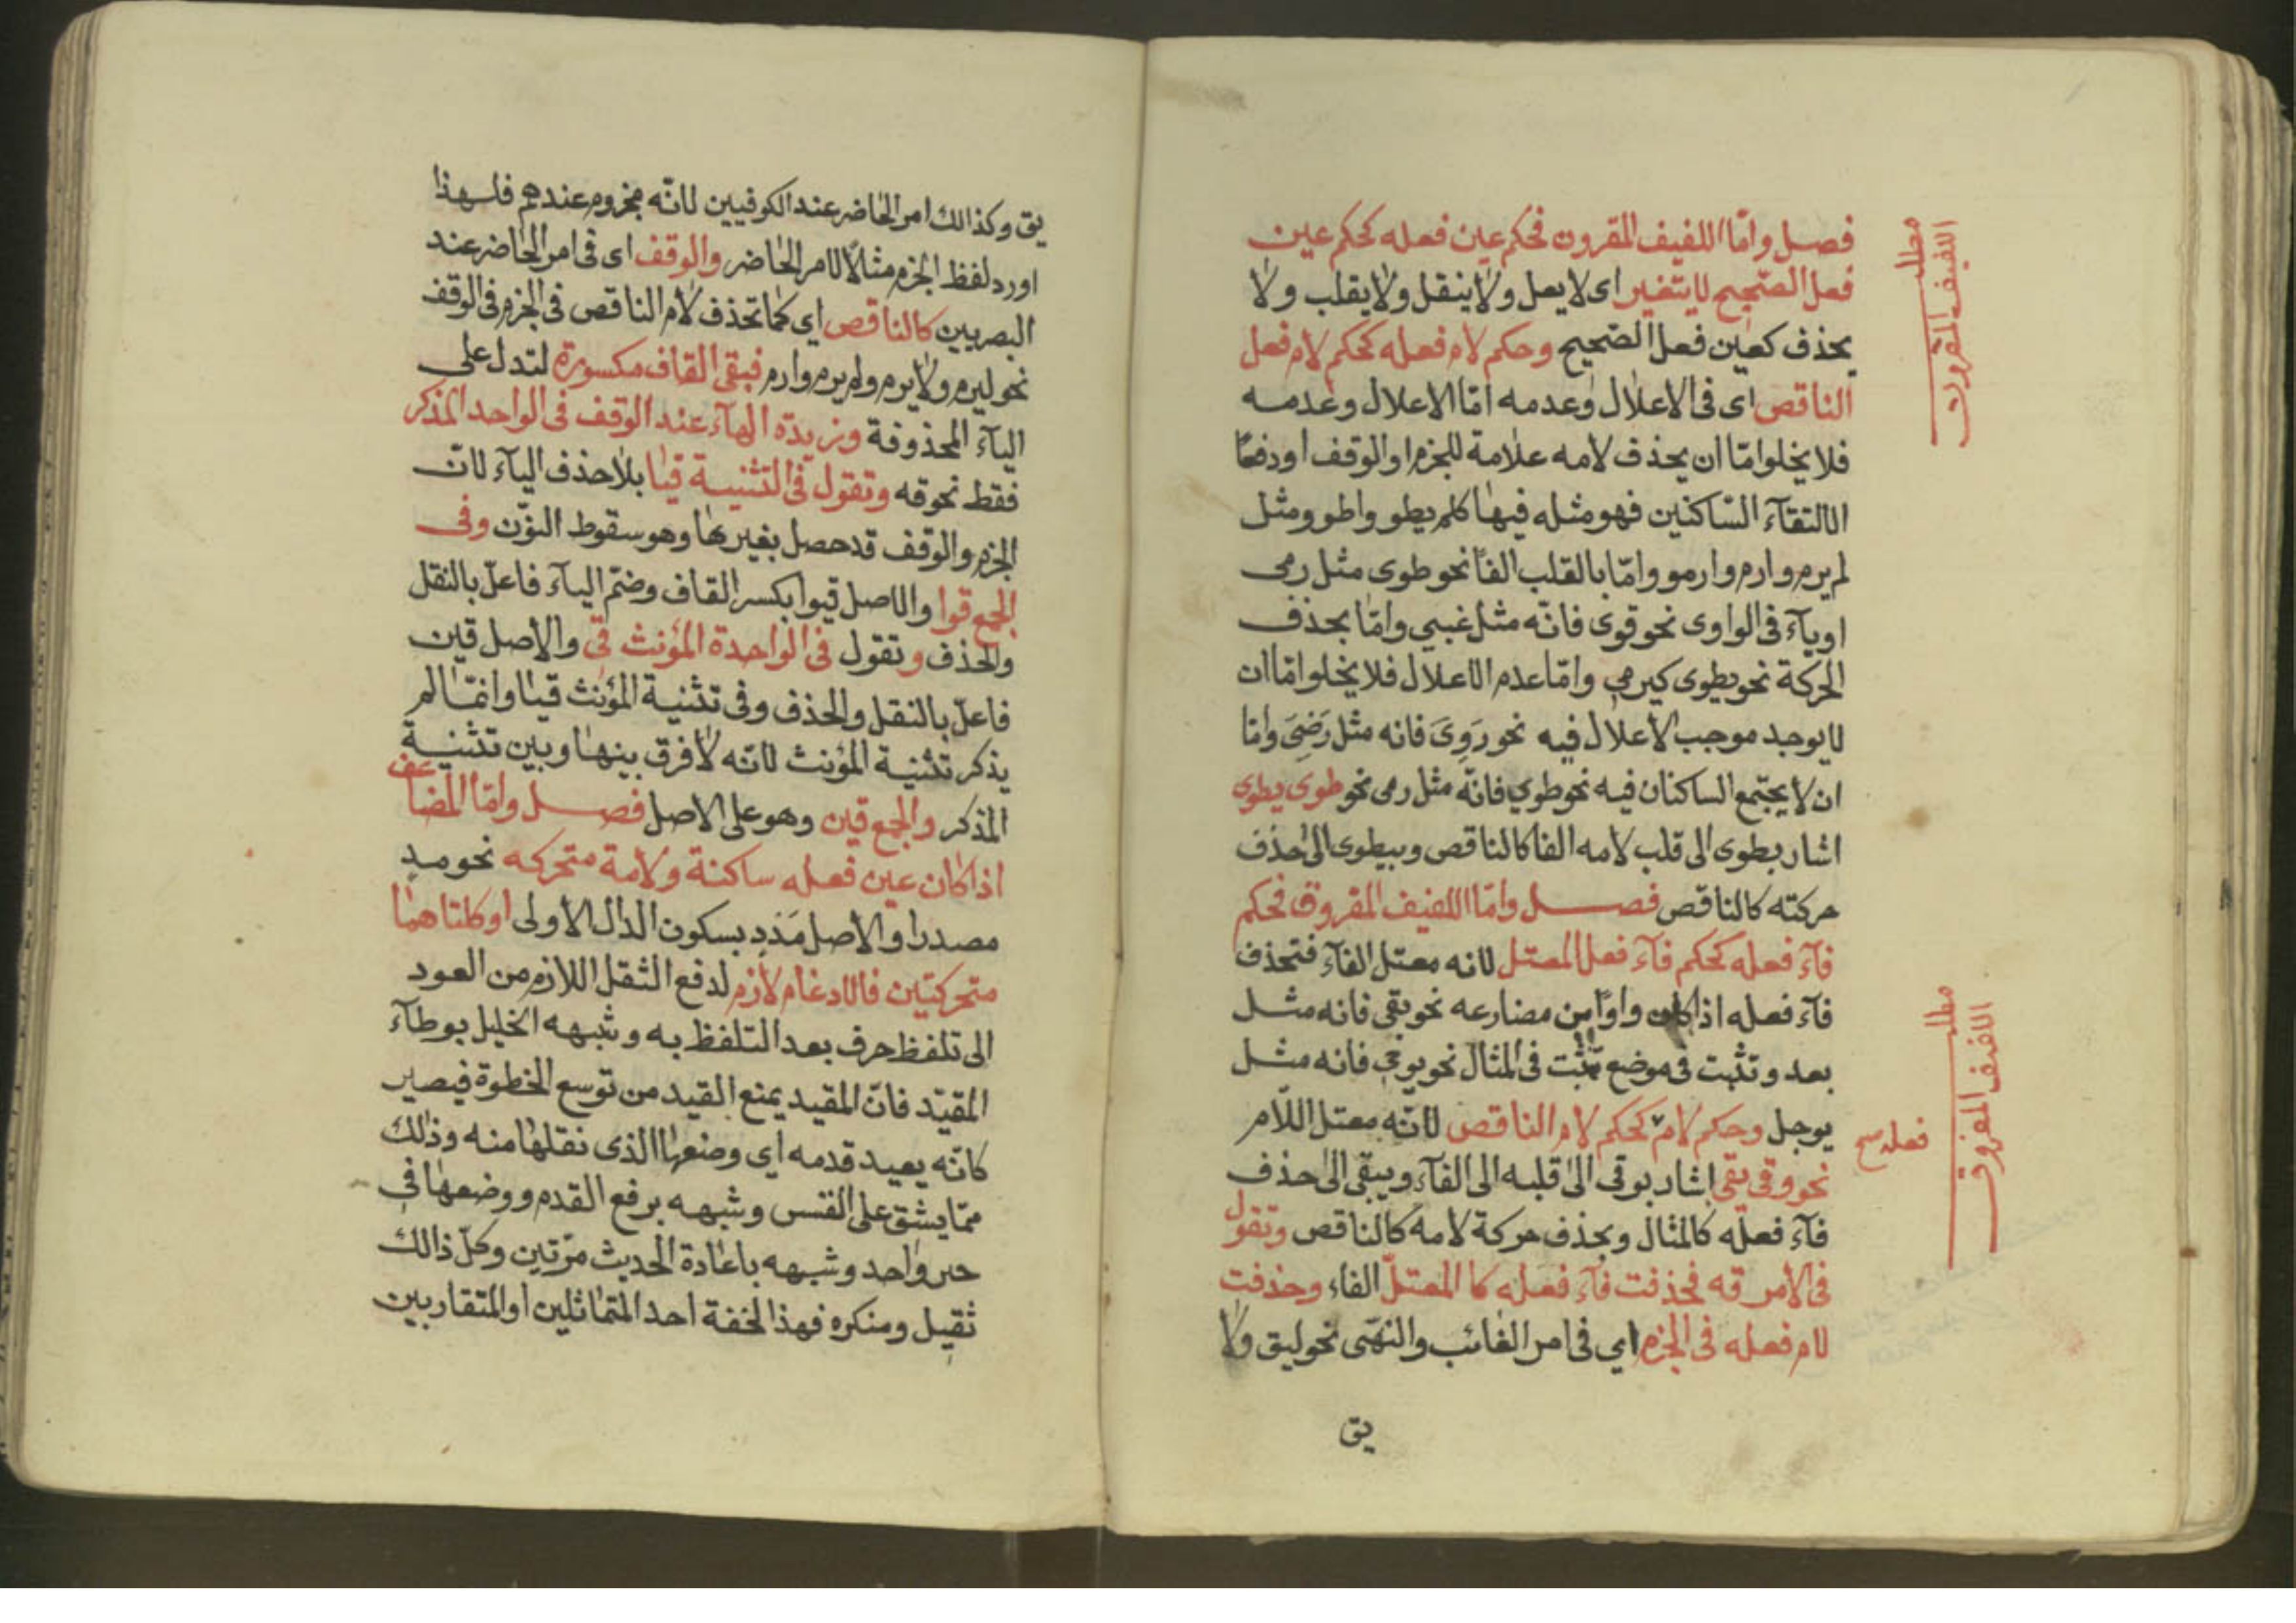 فصل وامّا اللفيف المقرون فحكم عين فعله كحكم عين
فعل الصّحيح لا يتغير اى لا يعل ولا ينقل ولا يقلب ولا
يحذف كعين فعل الصّحيح وحكم لام فعله كحكم لام فعل
الناقص اى فى الاعلال وعدمه امّا الاعلال وعدمه
فلا يخلوا امّا ان يحذف لامه علامة للجزم او الوقف او دفعًا
لالتقاء السّاكنين فهو مثله فيها كلم يطو واطو ومثل
لم يرم وارم وارمو وامّا بالقلب الفًا نحو طوى مثل رمى
اوياء فى الواوى نحو قوى فانّه مثل غبى وامّا بحذف
الحركة نحو يطوى كيرمى وامّا عدم الاعلال فلا يخلوا امّا ان
لا يوجد موجب الاعلال فيه نحو رَوِىَ فانه مثل رَضِىَ وامّا
ان لا يجتمع الساكنان فيه نحو طوي فانّه مثل رمى نحو طوى يطوى
اشار بطوى الى قلب لامه الفا كالناقص وبيطوى الى حذف
حركته كالناقص فصل وامّا اللفيف المفروق فحكم
فاء فعله كحكم فاء فعل المعتل لانه معتل الفاء فتحذف
فاء فعله اذا كان واوًا من مضارعه نحو يقى فانه مثل
يعد وتثبت فى موضع تثبت فى المثال نحو يوجى فانه مثل
يوجل وحكم لام كحكم لام الناقص لانّه معتل اللّام
نحو وقى يقى اشار بوقى الى قلبه الى الفاء وبيقى الى حذف
فاء فعله كالمثال وبحذف حركة لامه كالناقص وتقول
فى الأمر قه فحذفت فاء فعله كا المعتلّ الفاء وحذفت
لام فعله فى الجزم اي فى امر الغائب والنهى نحو ليق ولا
يق
مطلب
اللفيف المقرون
مطلب
اللفيف المفروق
فعله صح
يق وكذالك امر الحاضر عند الكوفيين لانّه مجزوم عندهم فلهذا
اورد لفظ الجزم مثالًا لامر الحاضر والوقف اى فى امر الحاضر عند
البصريين كالناقص اي كما تحذف لام الناقص فى الجزم فى الوقف
نحو ليرم ولا يرم ولم يرم وارم فبقى القاف مكسورة لتدل على
الياء المحذوفة وزيدة الهاء عند الوقف فى الواحد المذكر
فقط نحو قه وتقول فى التثنية قيا بلا حذف الياء لانّ
الجزم والوقف قد حصل بغيرها وهو سقوط النوّن وفى
الجمع قوا والاصل قيوا بكسر القاف وضمّ الياء فاعلّ بالنقل
والحذف وتقول فى الواحدة المؤنث قي والاصل قين
فاعلّ بالنقل والحذف وفى تثنية المؤنث قيا وانمّا لم
يذكر تثنية المؤنث لانّه لا فرق بينها وبين تثنية
المذكر والجمع قين وهو على الاصل فصل وامّا المضاعف
اذا كان عين فعله ساكنة ولامة متحركه نحو مد
مصدرا والاصل مَدْدٍ بسكون الدال الأولى او كلتا هما
متحركتين فالادغام لازم لدفع الثقل اللازم من العود
الى تلفظ حرف بعد التلفظ به وشبهه الخليل بوطاء
المقيّد فانّ المقيد يمنع القيد من توسع الخطوة فيصير
كانّه يعيد قدمه اي وضعها الذى نقلها منه وذلك
ممّا يشق على النفس وشبهه برفع القدم ووضعها في
حيز واحد وشبهه باعادة الحديث مرّتين وكلّ ذالك
ثقيل ومنكره فهذا الخفة احد المتماثلين او المتقاربين